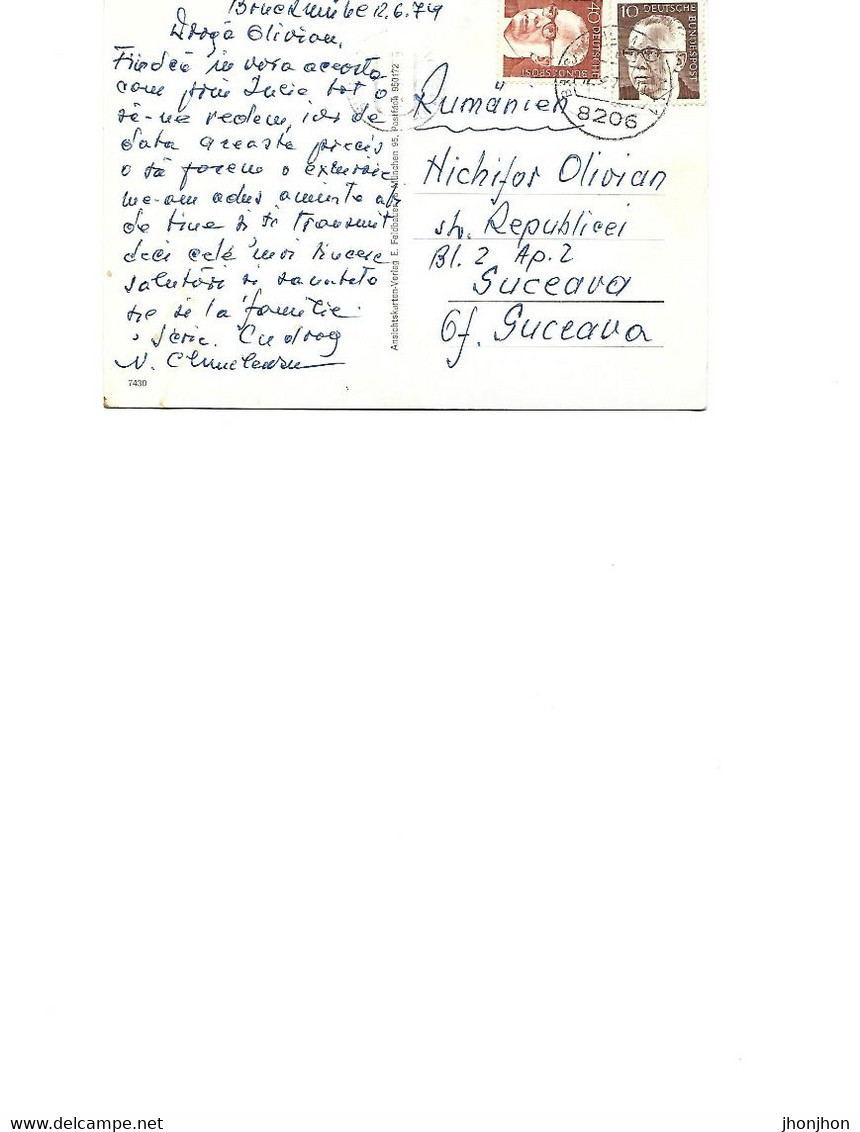 Bruckmühl 12.6.74
Dragă Olivian,
Findcă în vara aceasta
cam prin Iulie tot o
să-ne vedem, iar de
data aceasta precis
o să facem o excursie
me-am adus aminte
de tine și ți transmit
deci cele mai sincere
salutări și sanatate
ție și la familie.
Cu drag
N.
7430
Ansichtskarten-Verlag E. Feldbauer 8 München 95, Postfach 950172
40 DEUTSCHE BUNDESPOST
10 DEUTSCHE BUNDESPOST
8206
Rumänien
Hichifor Olivian
str. Republicei
Bl. 2 Ap. 2
Suceava
Gf. Suceava
delcampe.net
jhonjhon